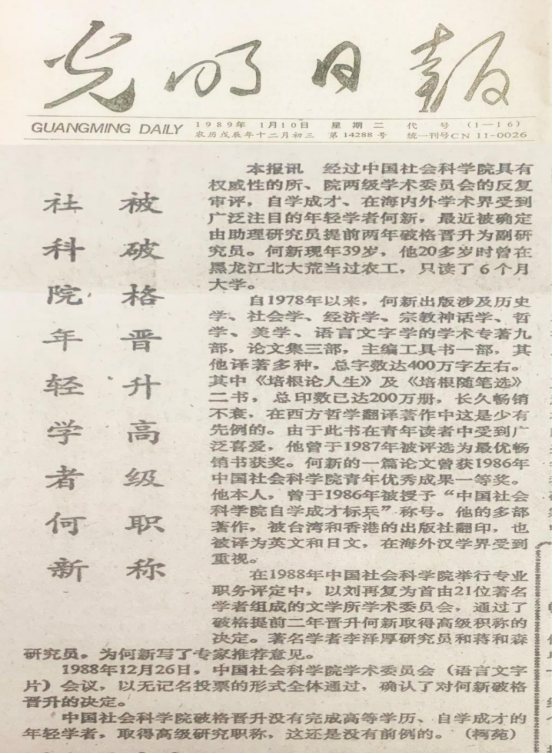 光明日报
GUANGMING DAILY
1989年 1月10日 星期二 代号 (1—16)
农历戊辰年十二月初三 第14288号 统一刊号CN 11-0026
社科院年轻学者何新
被破格晋升高级职称
本报讯 经过中国社会科学院具有
权威性的所、院两级学术委员会的反复
审评,自学成才、在海内外学术界受到
广泛注目的年轻学者何新,最近被确定
由助理研究员提前两年破格晋升为副研
究员。何新现年39岁,他20多岁时曾在
黑龙江北大荒当过农工,只读了6个月
大学。
自1978年以来,何新出版涉及历史
学、社会学、经济学、宗教神话学、哲
学、美学、语言文字学的学术专著九
部,论文集三部,主编工具书一部,其
他译著多种,总字数达400万字左右。
其中《培根论人生》及《培根随笔选》
二书,总印数已达200万册,长久畅销
不衰,在西方哲学翻译著作中这是少有
先例的。由于此书在青年读者中受到广
泛喜爱,他曾于1987年被评选为最优畅
销书获奖。何新的一篇论文曾获1986年
中国社会科学院青年优秀成果一等奖。
他本人,曾于1986年被授予“中国社会
科学院自学成才标兵”称号。他的多部
著作,被台湾和香港的出版社翻印,也
被译为英文和日文,在海外汉学界受到
重视。
在1988年中国社会科学院举行专业
职务评定中,以刘再复为首由21位著名
学者组成的文学所学术委员会,通过了
破格提前二年晋升何新取得高级积称的
决定。著名学者李泽厚研究员和蒋和森
研究员,为何新写了专家推荐意见。
1988年12月26日,中国社会科学院学术委员会(语言文字
片)会议,以无记名投票的形式全体通过,确认了对何新破格
晋升的决定。
中国社会科学院破格晋升没有完成高等学历、自学成才的
年轻学者,取得高级研究职称,这还是没有前例的。(柯苑)